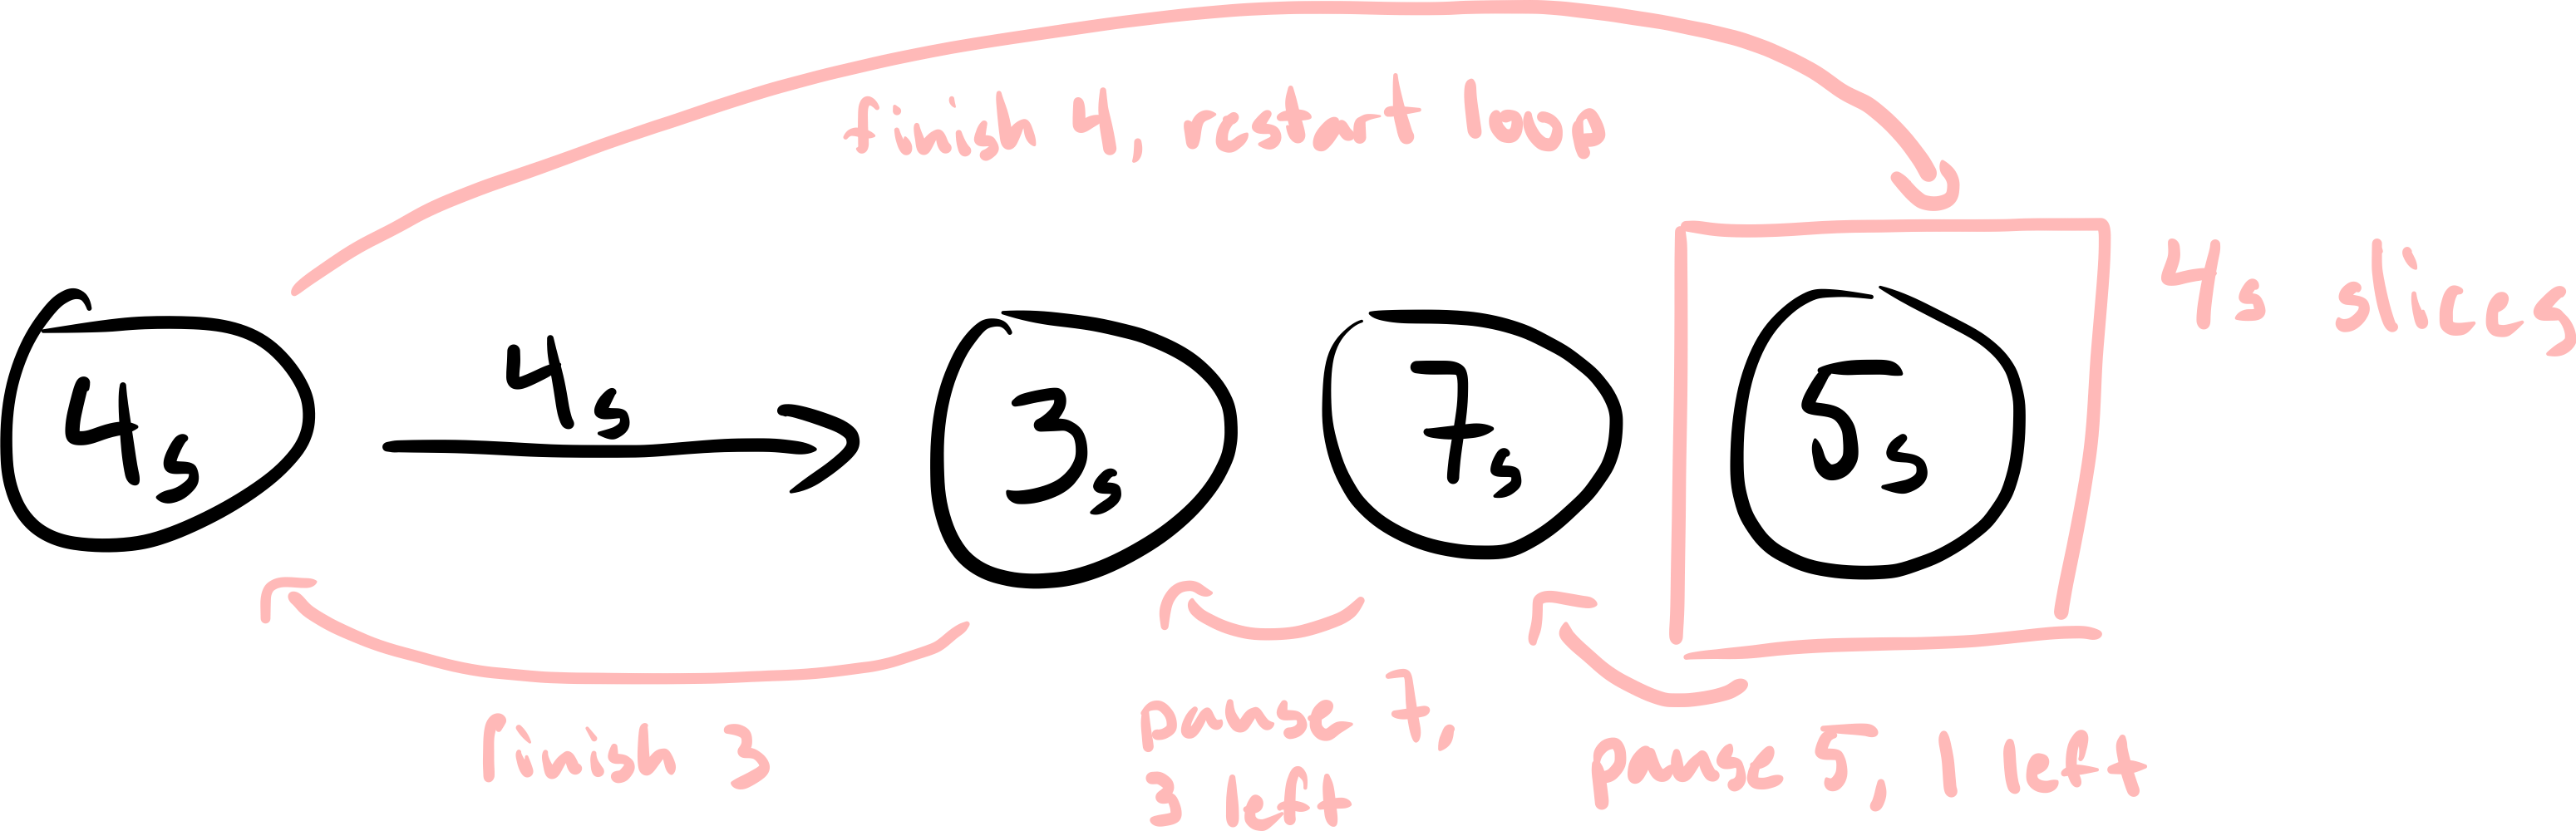 finish 4, restart loop
4s slices
4s
4s
3s
7s
5s
finish 3
pause 7,
3 left
pause 5, 1 left